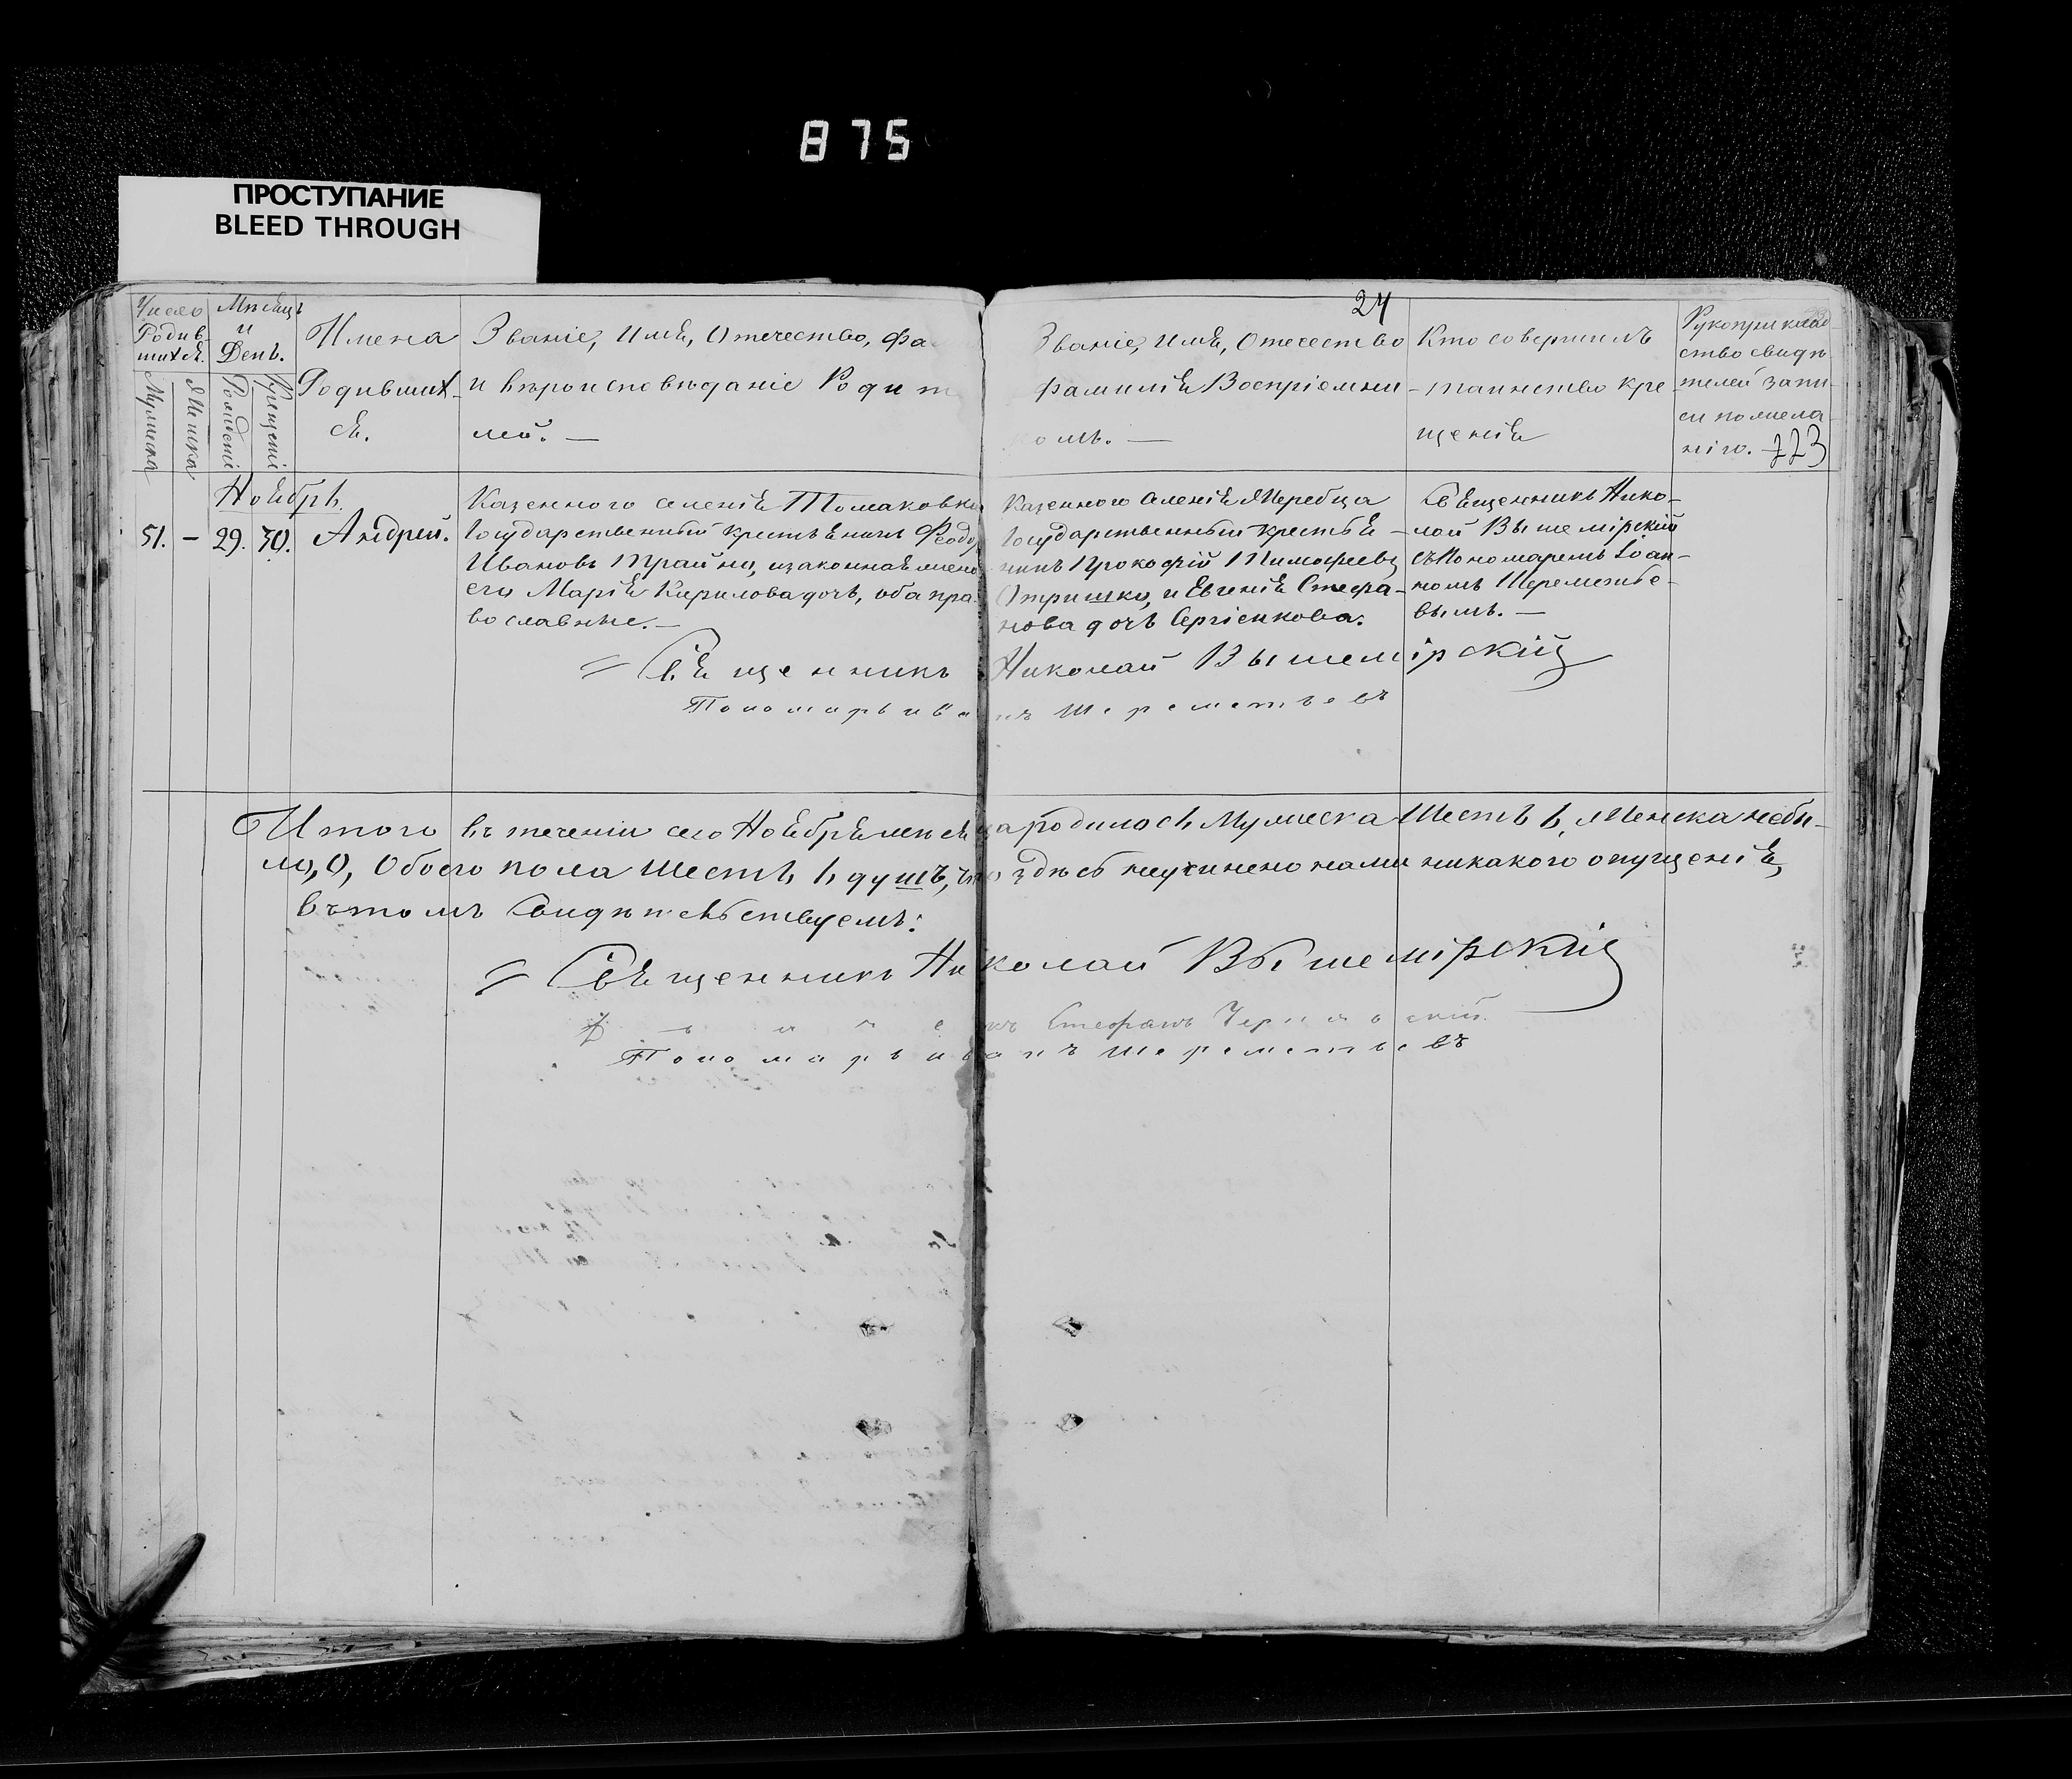 875
ПРОСТУПАНИЕ
BLEED THROUGH
24
Число Родив-шихся.
Мужеска
Женска
Мѣсяцъ и День.
Рожденія
Крещенія
Имена
Родивших-
ся.
Званіе, Имя, Отечество, Фа
и вѣроисповѣданіе Родит
лей. —
Званіе, Имя, Отечество
Фамилія Воспріемни-
комъ. —
Кто совершилъ
таинство кре
щенія
Рукоприклад-
ство свидѣ
телей запи-
си по жела
нію. 223
Ноябрь.
51. — 29. 30. Андрей.
Казенного селенія Томаковки
Государственный крестьянинъ Феодо
Ивановъ Трайно, и законная жена
его Марія Кирилова дочь, оба пра-
вославные. —
Казенного селенія Жеребца
Государственный крестья-
нинъ Прокофій Тимофеевъ
Отришко, и Евгенія Стефа-
нова дочь Сергіенкова.
Священникъ Нико-
лай Вышемірскій
съ Пономаремъ Іоан-
номъ Шереметье-
вымъ. —
= Священникъ Николай Вышемірскій
Пономарь Иванъ Шереметьевъ
Итого въ теченіи сего Ноября месяца родилось Мужеска Шесть 6, Женска небы-
ло, 0, Обоего пола Шесть 6 душъ, что здѣсь неучинено нами никакого опущенія,
въ томъ Свидѣтельствуемъ:
= Священникъ Николай Вышемірскій
Стефанъ
Пономарь Иванъ Шереметьевъ